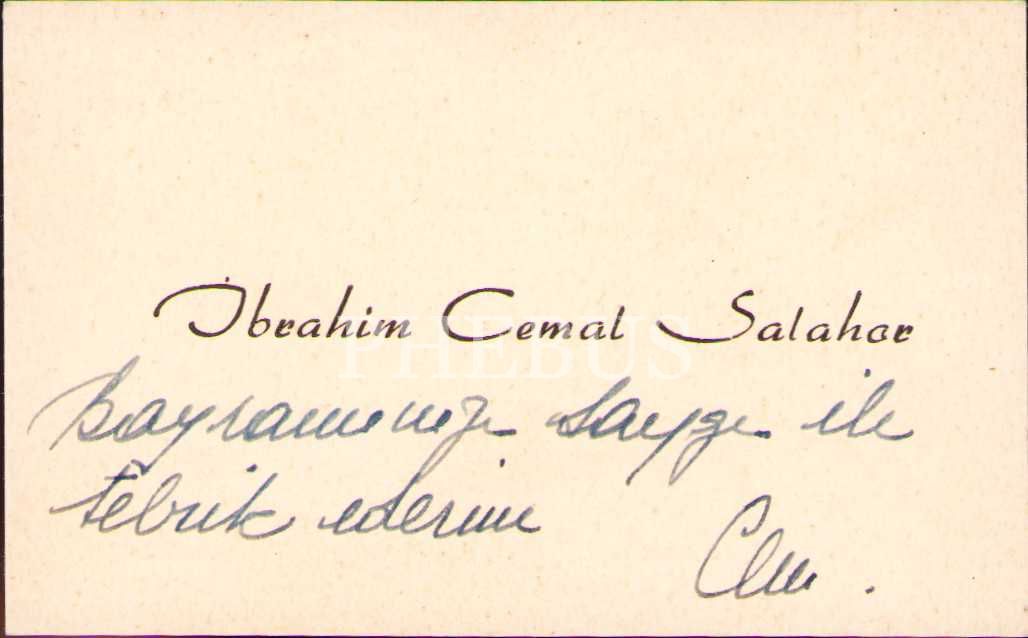 İbrahim Cemal Salahor
PHEBUS
Bayramınızı saygı ile
tebrik ederim
Cem.